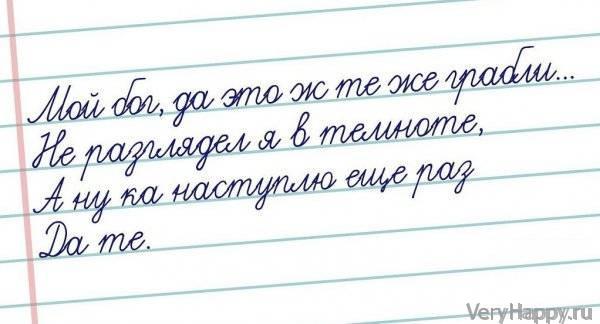 Мой бог, да это ж те же грабли...
Не разглядел я в темноте,
А ну ка наступлю еще раз
Да те.
VeryHappy.ru